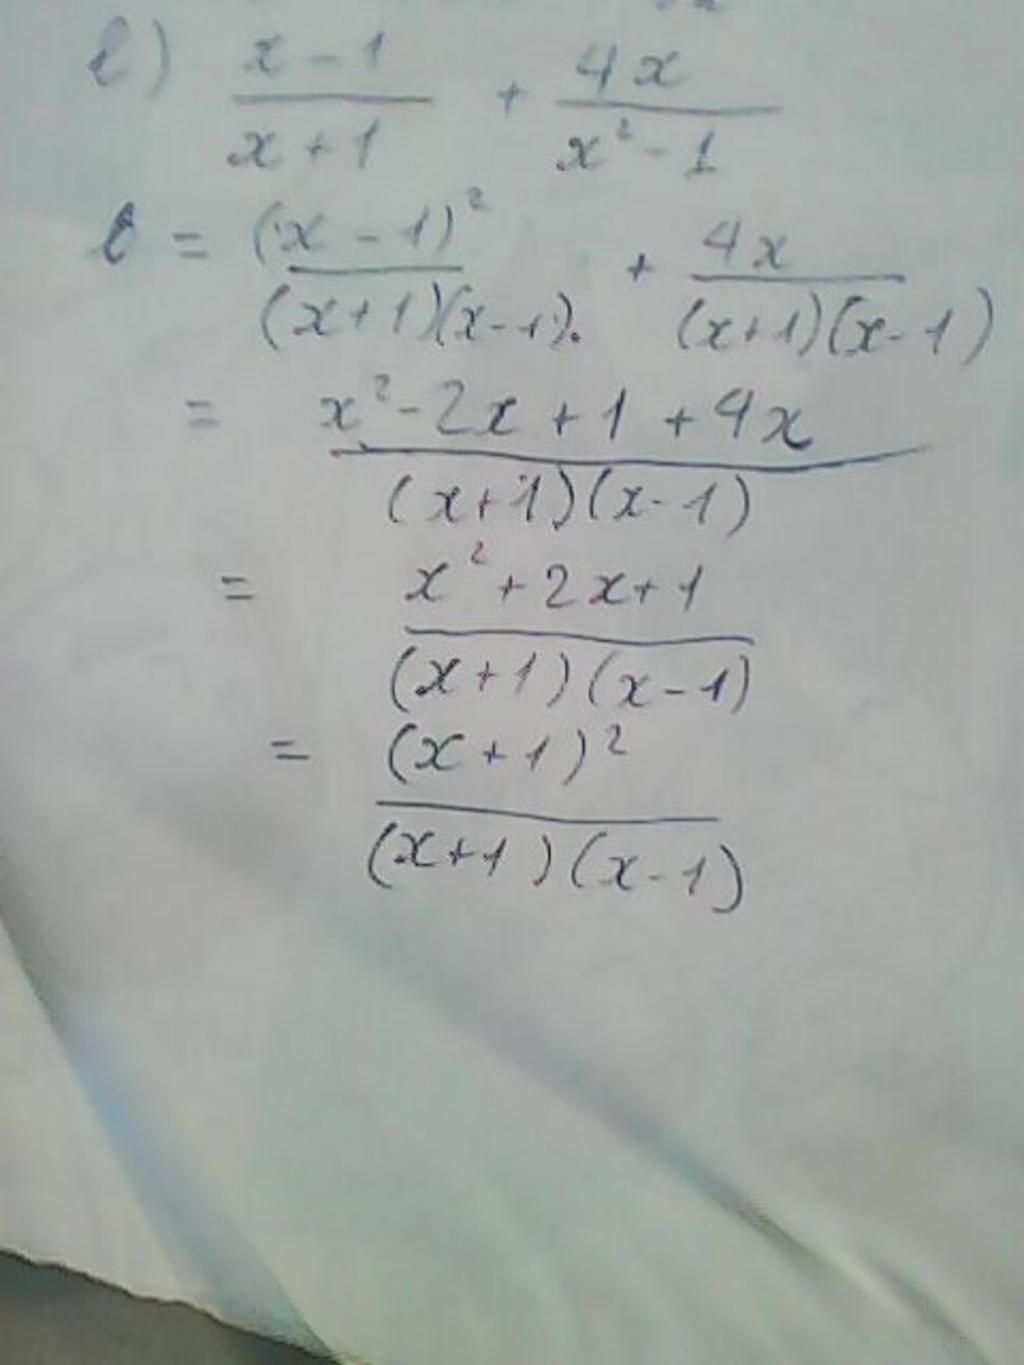 l) \frac{x-1}{x+1} + \frac{4x}{x^2-1}
l = \frac{(x-1)^2}{(x+1)(x-1)} + \frac{4x}{(x+1)(x-1)}
= \frac{x^2-2x+1+4x}{(x+1)(x-1)}
= \frac{x^2+2x+1}{(x+1)(x-1)}
= \frac{(x+1)^2}{(x+1)(x-1)}